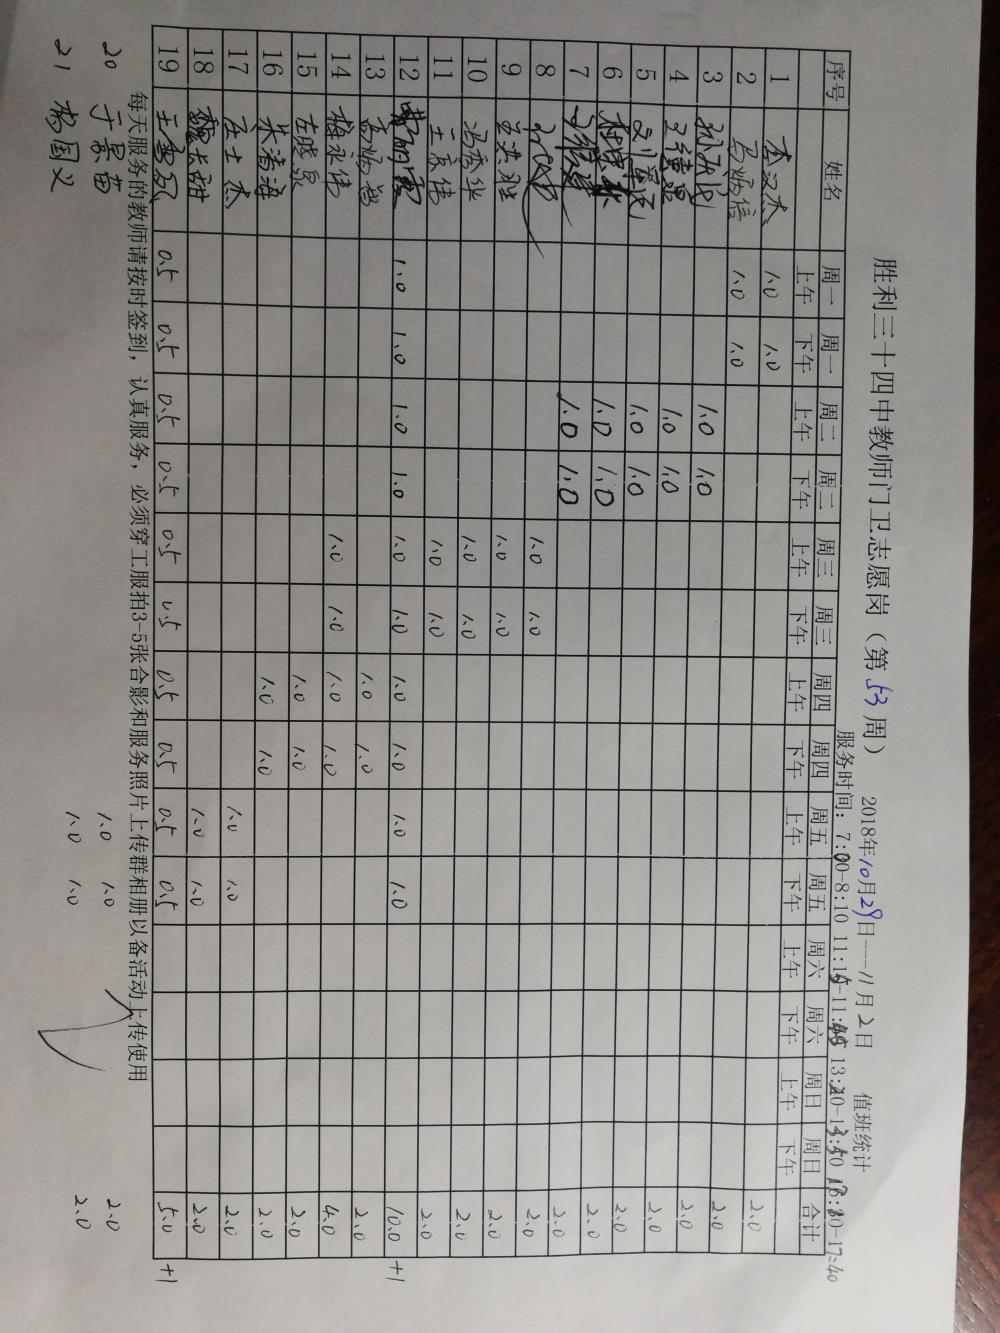 胜利三十四中教师门卫志愿岗（第53周） 2018年10月29日——11月2日 值班统计
服务时间：7:00-8:10 11:15-11:45 13:20-13:50 16:30-17:40
序号 姓名 周一上午 周一下午 周二上午 周二下午 周三上午 周三下午 周四上午 周四下午 周五上午 周五下午 周六上午 周六下午 周日上午 周日下午 合计
1 李汉杰 1.0 1.0
2 马炳信 1.0 1.0 2.0
3 1.0 1.0 2.0
4 王德昌 1.0 1.0 2.0
5 刘军民 1.0 1.0 2.0
6 1.0 1.0 2.0
7 1.0 1.0 2.0
8 1.0 1.0 2.0
9 王洪胜 1.0 1.0 2.0
10 冯秀华 1.0 1.0 2.0
11 王京伟 1.0 1.0 2.0
12 1.0 1.0 1.0 1.0 1.0 1.0 1.0 1.0 1.0 1.0 10.0 +1
13 孟炳营 1.0 1.0 2.0
14 梅永伟 1.0 1.0 1.0 1.0 4.0
15 左晓泉 1.0 1.0 2.0
16 朱清海 1.0 1.0 2.0
17 庄士杰 1.0 1.0 2.0
18 魏长甜 1.0 1.0 2.0
19 0.5 0.5 0.5 0.5 0.5 0.5 0.5 0.5 0.5 0.5 5.0 +1
每天服务的教师请按时签到，认真服务，必须穿工服拍3-5张合影和服务照片上传群相册以备活动上传使用
20 于景苗 1.0 1.0 2.0
21 杨国义 1.0 1.0 2.0